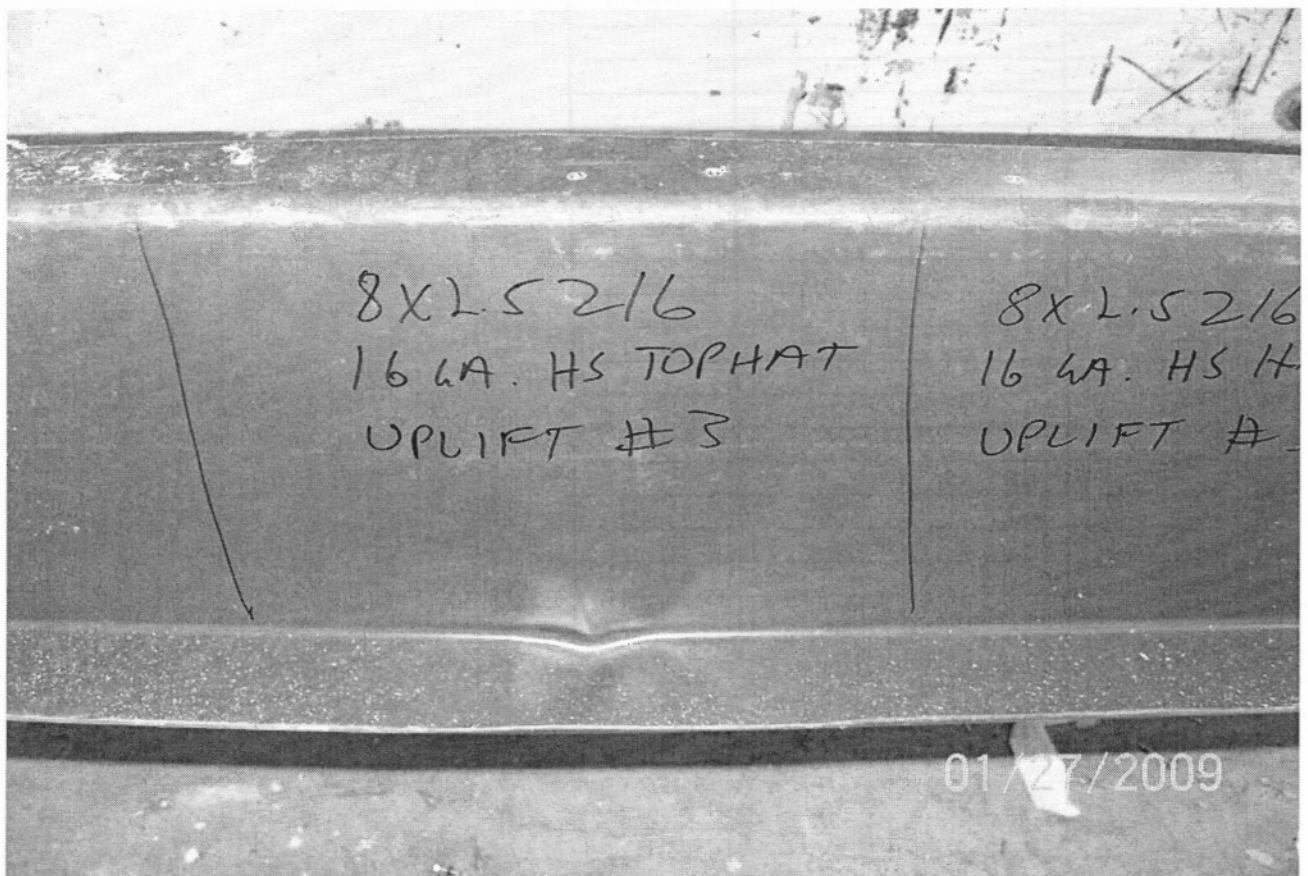 8X2.5Z16
16 GA. HS TOPHAT
UPLIFT #3
8X2.5Z16
16 GA. HS H
UPLIFT #
01/27/2009